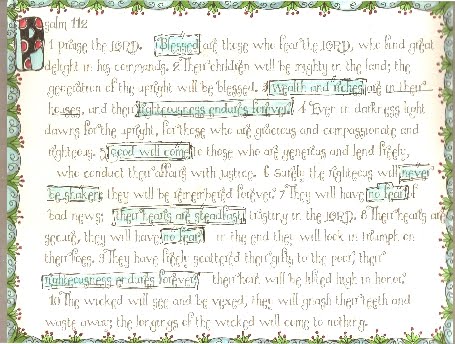 Psalm 112
1 praise the LORD. Blessed are those who fear the LORD, who find great
delight in his commands. 2 Their children will be mighty in the land; the
generation of the upright will be blessed. 3 wealth and riches are in their
houses, and their righteousness endures forever. 4 Even in darkness light
dawns for the upright, for those who are gracious and compassionate and
righteous. 5 good will come to those who are generous and lend freely,
who conduct their affairs with justice. 6 surely the righteous will never
be shaken; they will be remembered forever. 7 They will have no fear of
bad news; their hearts are steadfast, trusting in the LORD. 8 Their hearts are
secure, they will have no fear; in the end they will look in triumph on
their foes. 9 They have freely scattered their gifts to the poor, their
righteousness endures forever; their horn will be lifted high in honor.
10 The wicked will see and be vexed, they will gnash their teeth and
waste away; the longings of the wicked will come to nothing.